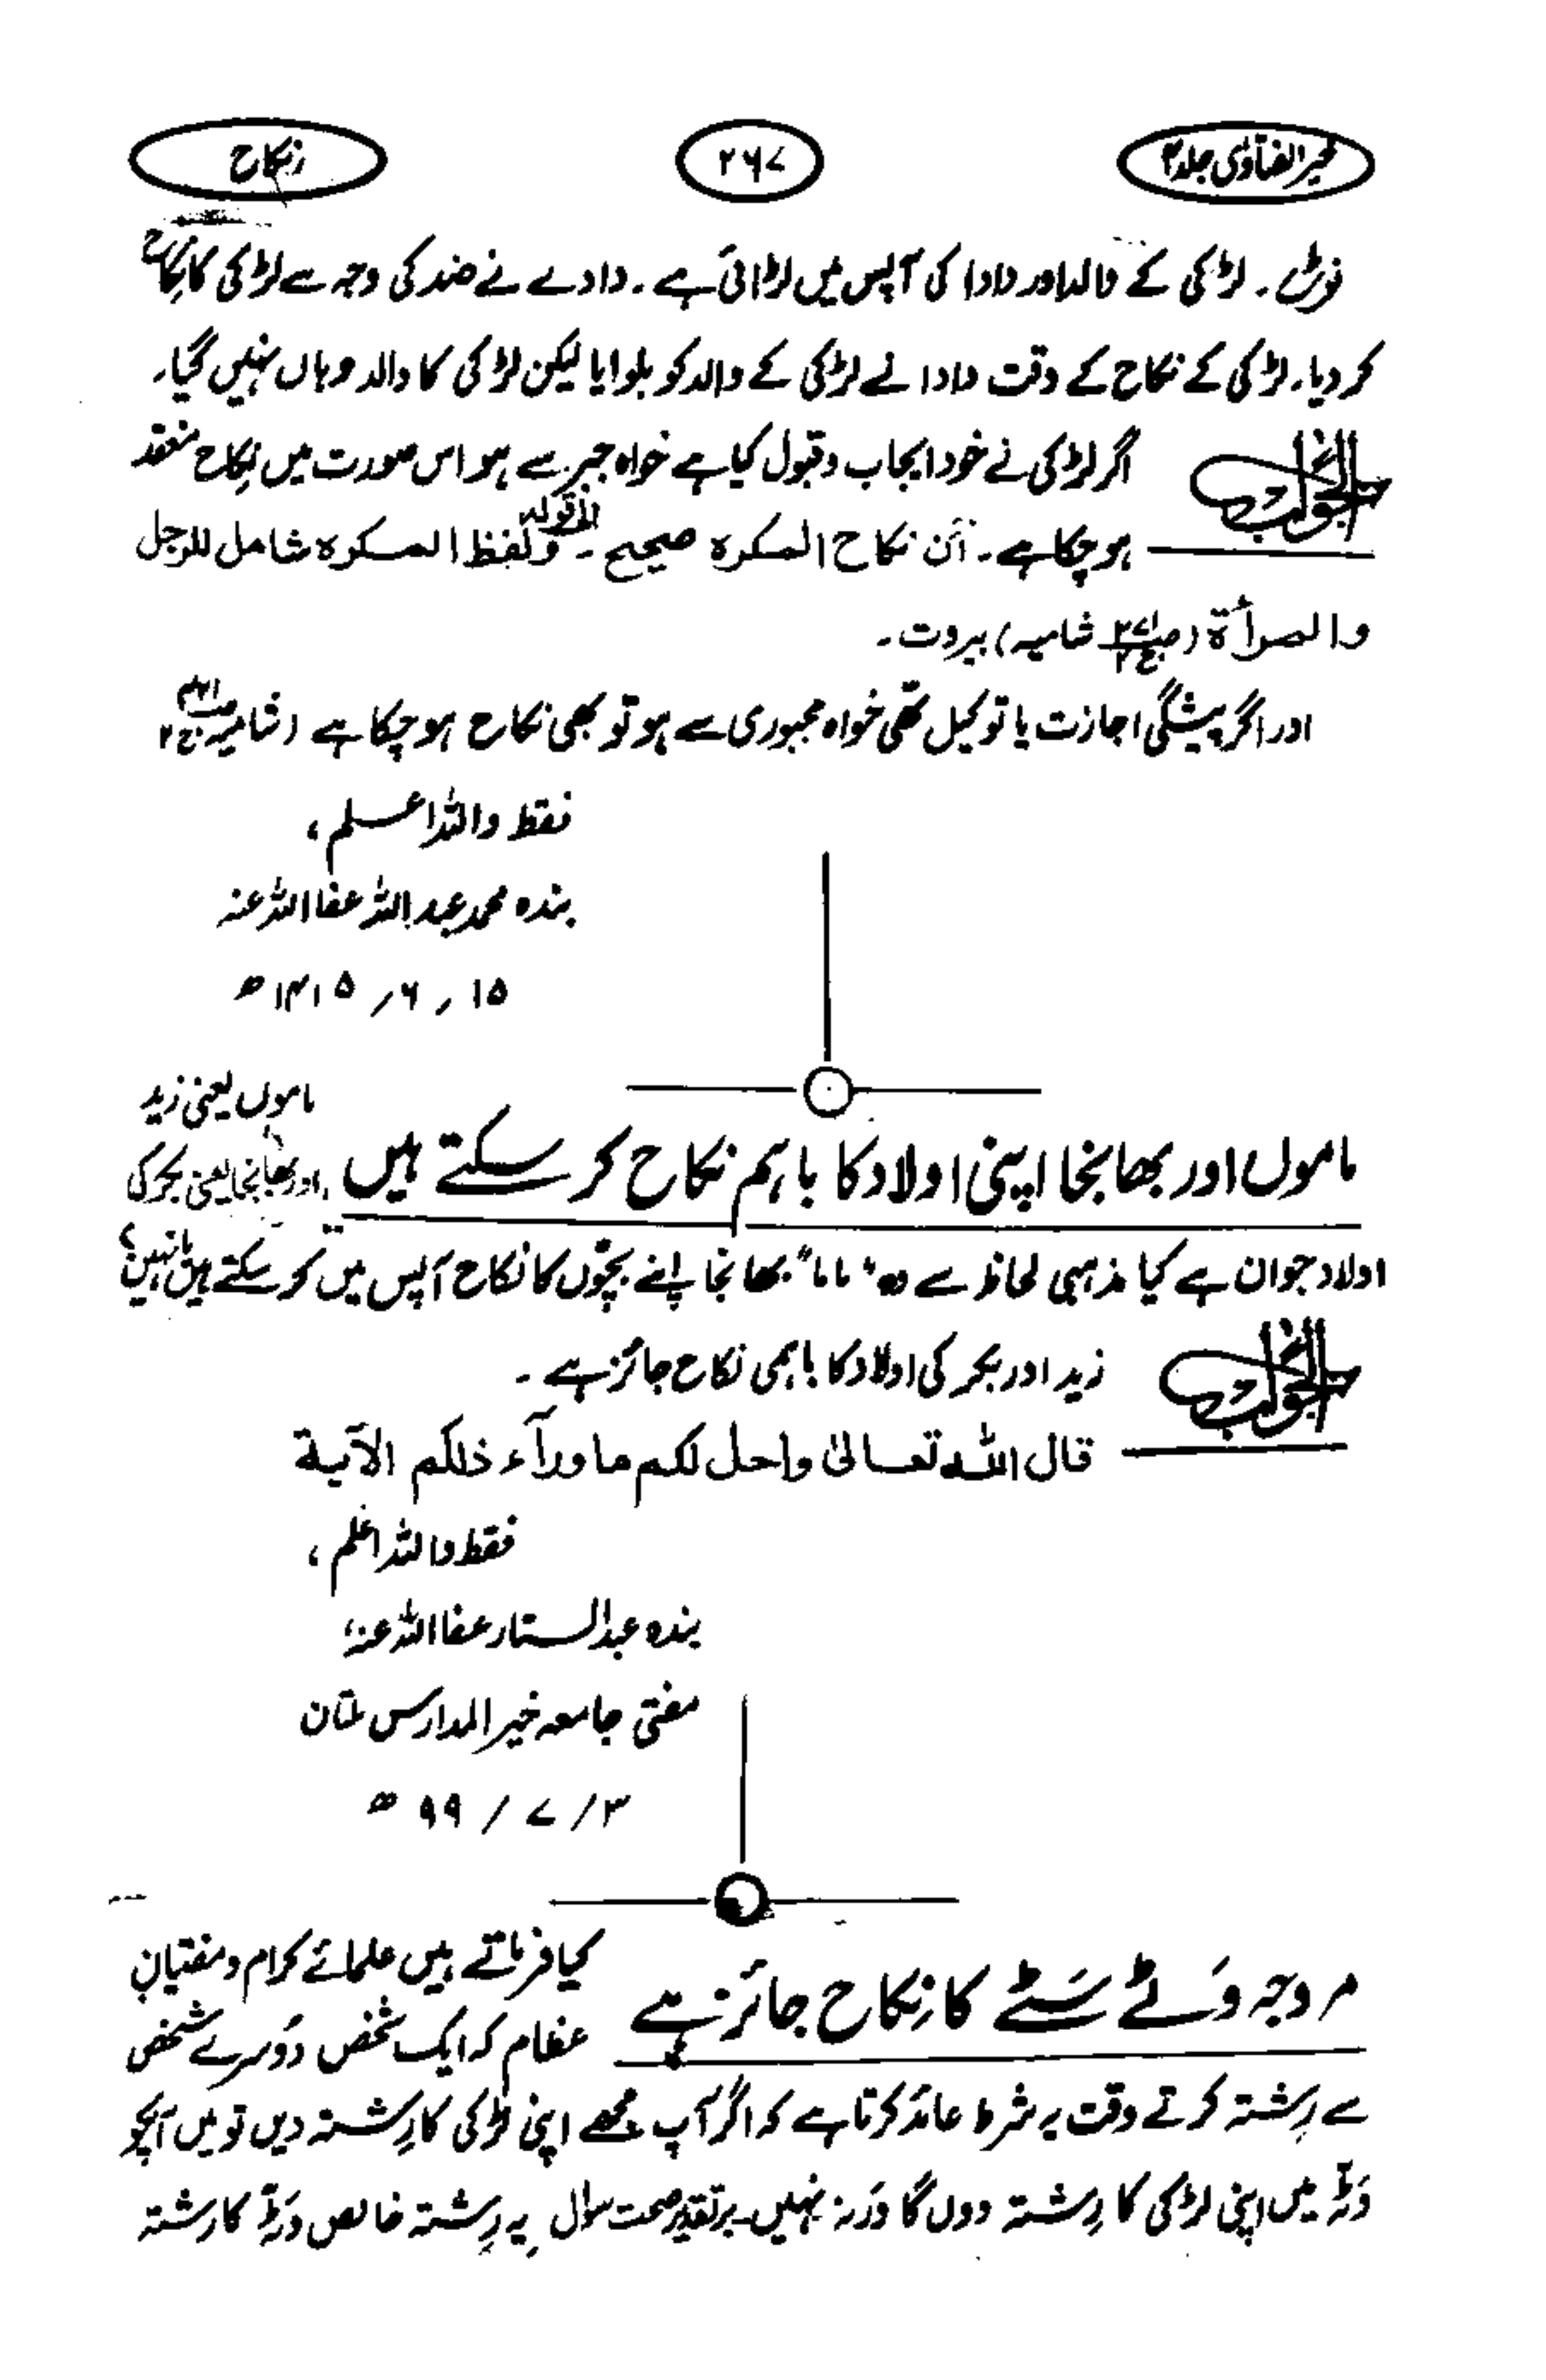 خیر الفتاویٰ جلد ۴
۲۶۷
نکاح
نوٹ۔ لڑکی کے والد اور دادا کی آپس میں لڑائی ہے۔ دادے نے ضد کی وجہ سے لڑکی کا نکاح
کر دیا۔ لڑکی کے نکاح کے وقت دادا نے لڑکی کے والد کو بلوایا لیکن لڑکی کا والد وہاں نہیں گیا۔
الجواب
اگر لڑکی نے خود ایجاب و قبول کیا ہے خواہ جبر سے ہو اس صورت میں نکاح منعقد
ہو چکا ہے۔ أن نکاح المکرہ صحیح۔ الی قولہ ولفظ المکرہ شامل للرجل
والمرأة (شامیہ) بیروت۔
اور اگر پیشگی اجازت یا توکیل تھی خواہ مجبوری سے ہو تو بھی نکاح ہو چکا ہے (شامیہ
فقط واللہ اعلم،
بندہ محمد عبداللہ عفا اللہ عنہ
۱۵؍ ۶؍ ۱۴۱۵ھ
ماموں اور بھانجا اپنی اولاد کا باہم نکاح کر سکتے ہیں
ماموں یعنی زید
اور بھانجا یعنی بکر کی
اولاد جوان ہے کیا مذہبی لحاظ سے وہ "ماما" بھانجا اپنے بچوں کا نکاح آپس میں کر سکتے ہیں یا نہیں؟
الجواب
زید اور بکر کی اولاد کا باہمی نکاح جائز ہے۔
قال اللہ تعالیٰ واحل لکم ما ورآء ذلکم الآیة
فقط واللہ اعلم،
بندہ عبدالستار عفا اللہ عنہ،
مفتی جامعہ خیر المدارس ملتان
۳/ ۷ / ۹۹ ھ
مروجہ وَٹے سَٹے کا نِکاح جائز ہے
کیا فرماتے ہیں علمائے کرام و مفتیانِ
عظام کہ ایک شخص دوسرے شخص
سے رِشتہ کرتے وقت یہ شرط عائد کرتا ہے کہ اگر آپ مجھے اپنی لڑکی کا رِشتہ دیں تو میں آپکو
وَٹہ میں اپنی لڑکی کا رِشتہ دوں گا وَرنہ نہیں۔ برتقدیر صحت سوال یہ رِشتہ خالص وَٹہ کا رشتہ